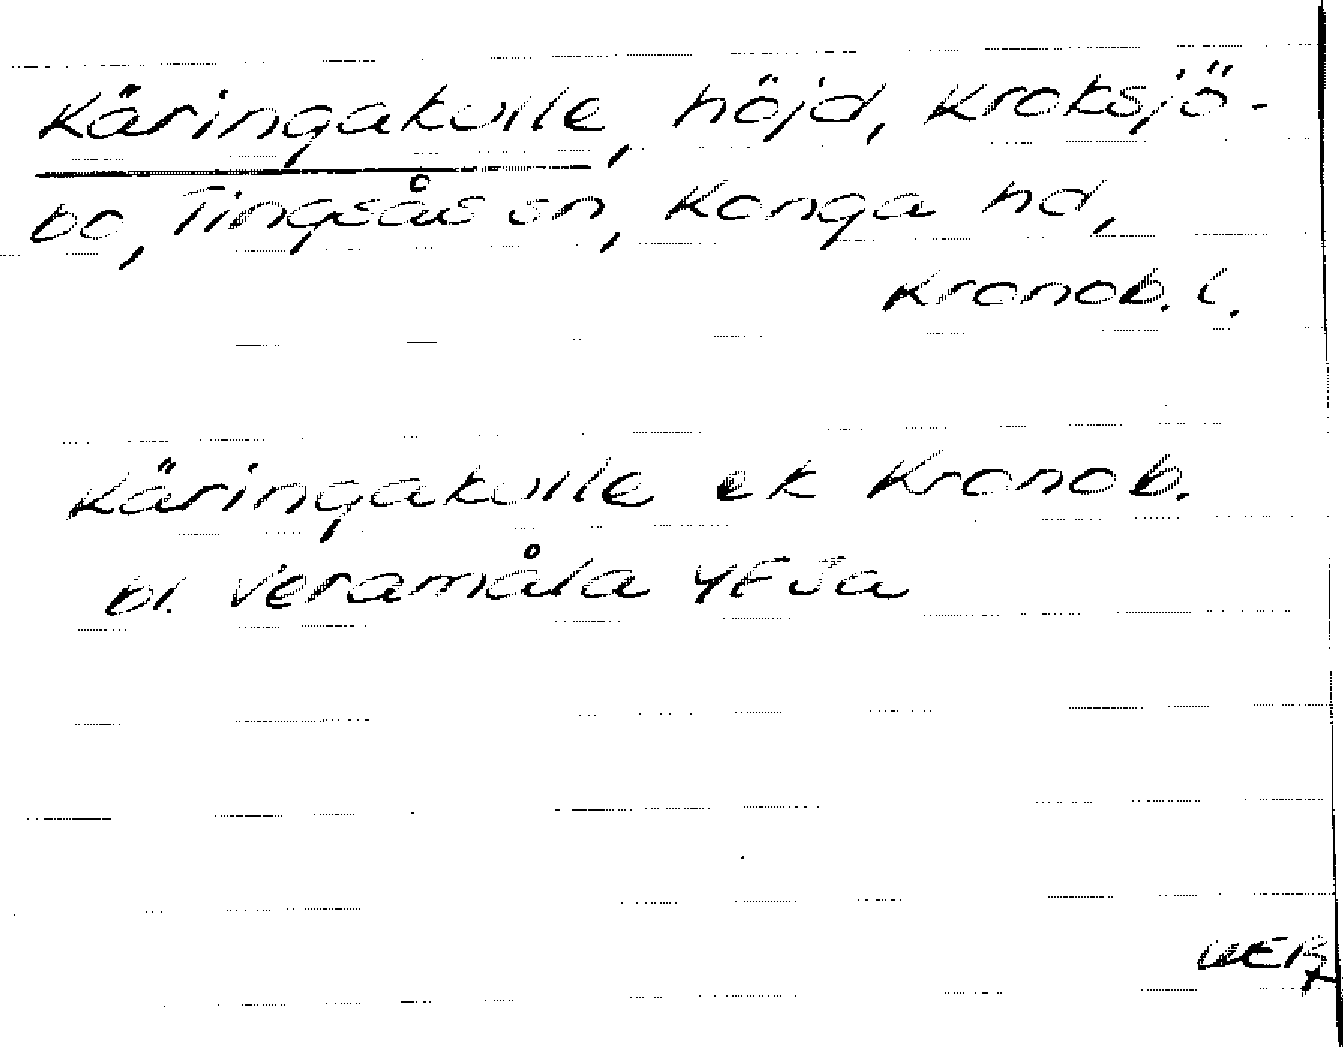 Käringakulle, höjd, Kroksjö-
bo, Tingsås sn, Konga hd,
Kronob. l.
Käringakulle ek Kronob.
bl. Veramåla 4F Ja